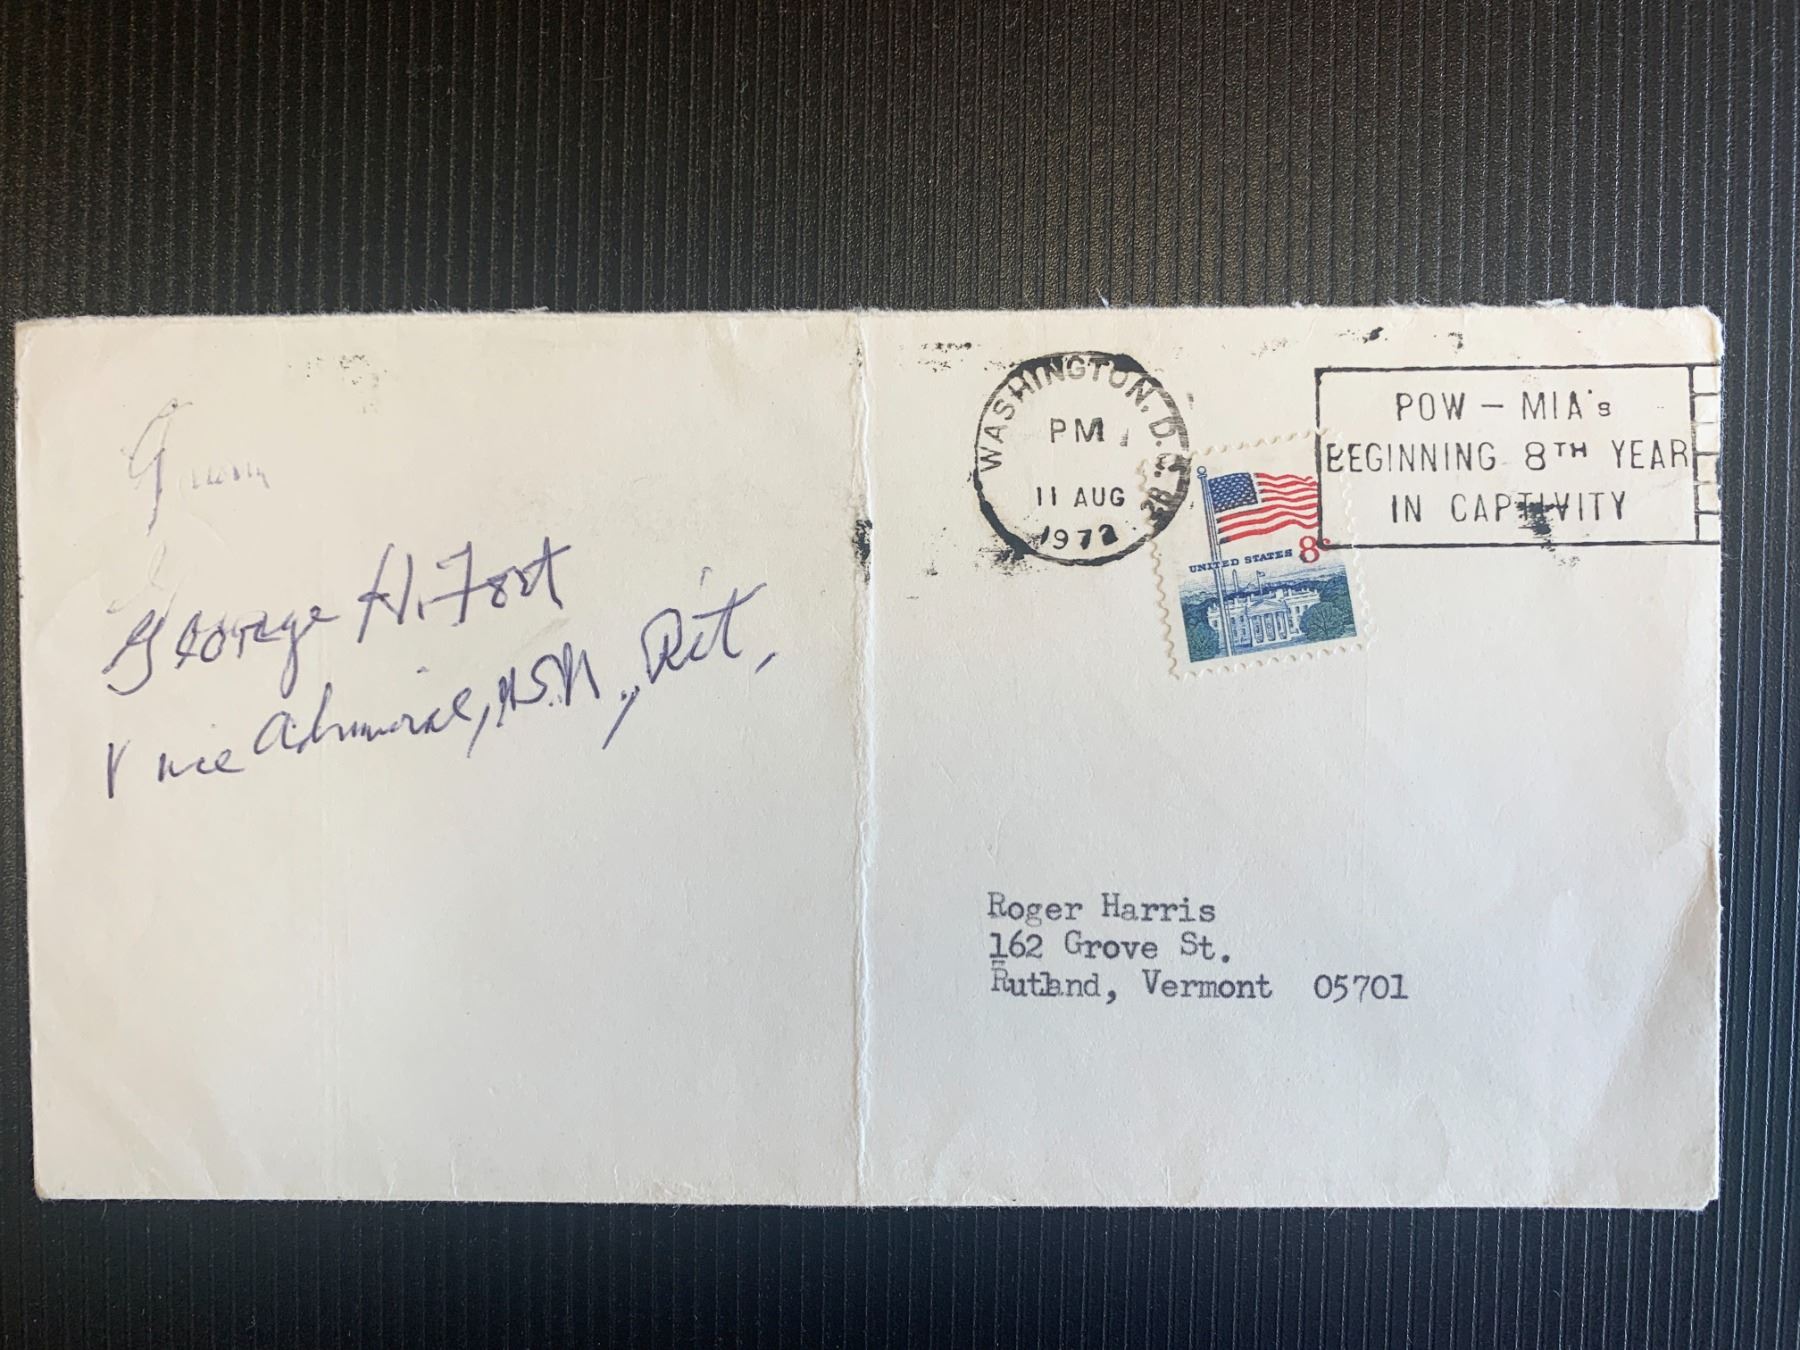 George H. Fort
Vice Admiral, U.S.N., Ret.
WASHINGTON, D.C.
PM
11 AUG
1972
POW - MIA's
BEGINNING 8TH YEAR
IN CAPTIVITY
UNITED STATES 8c
Roger Harris
162 Grove St.
Rutland, Vermont 05701